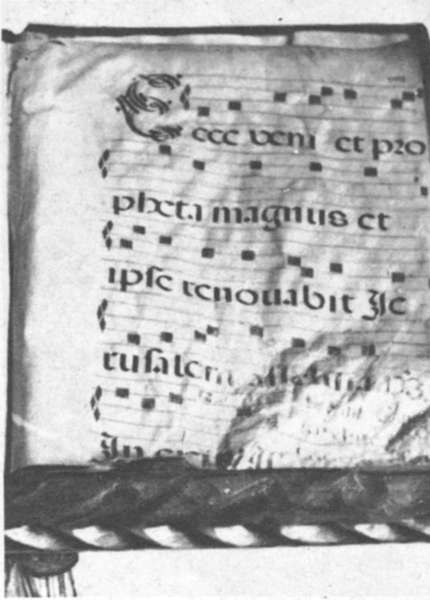 Ecce veni et pro
pheta magnus et
ipse renouabit Je
rusalem alleluia
In